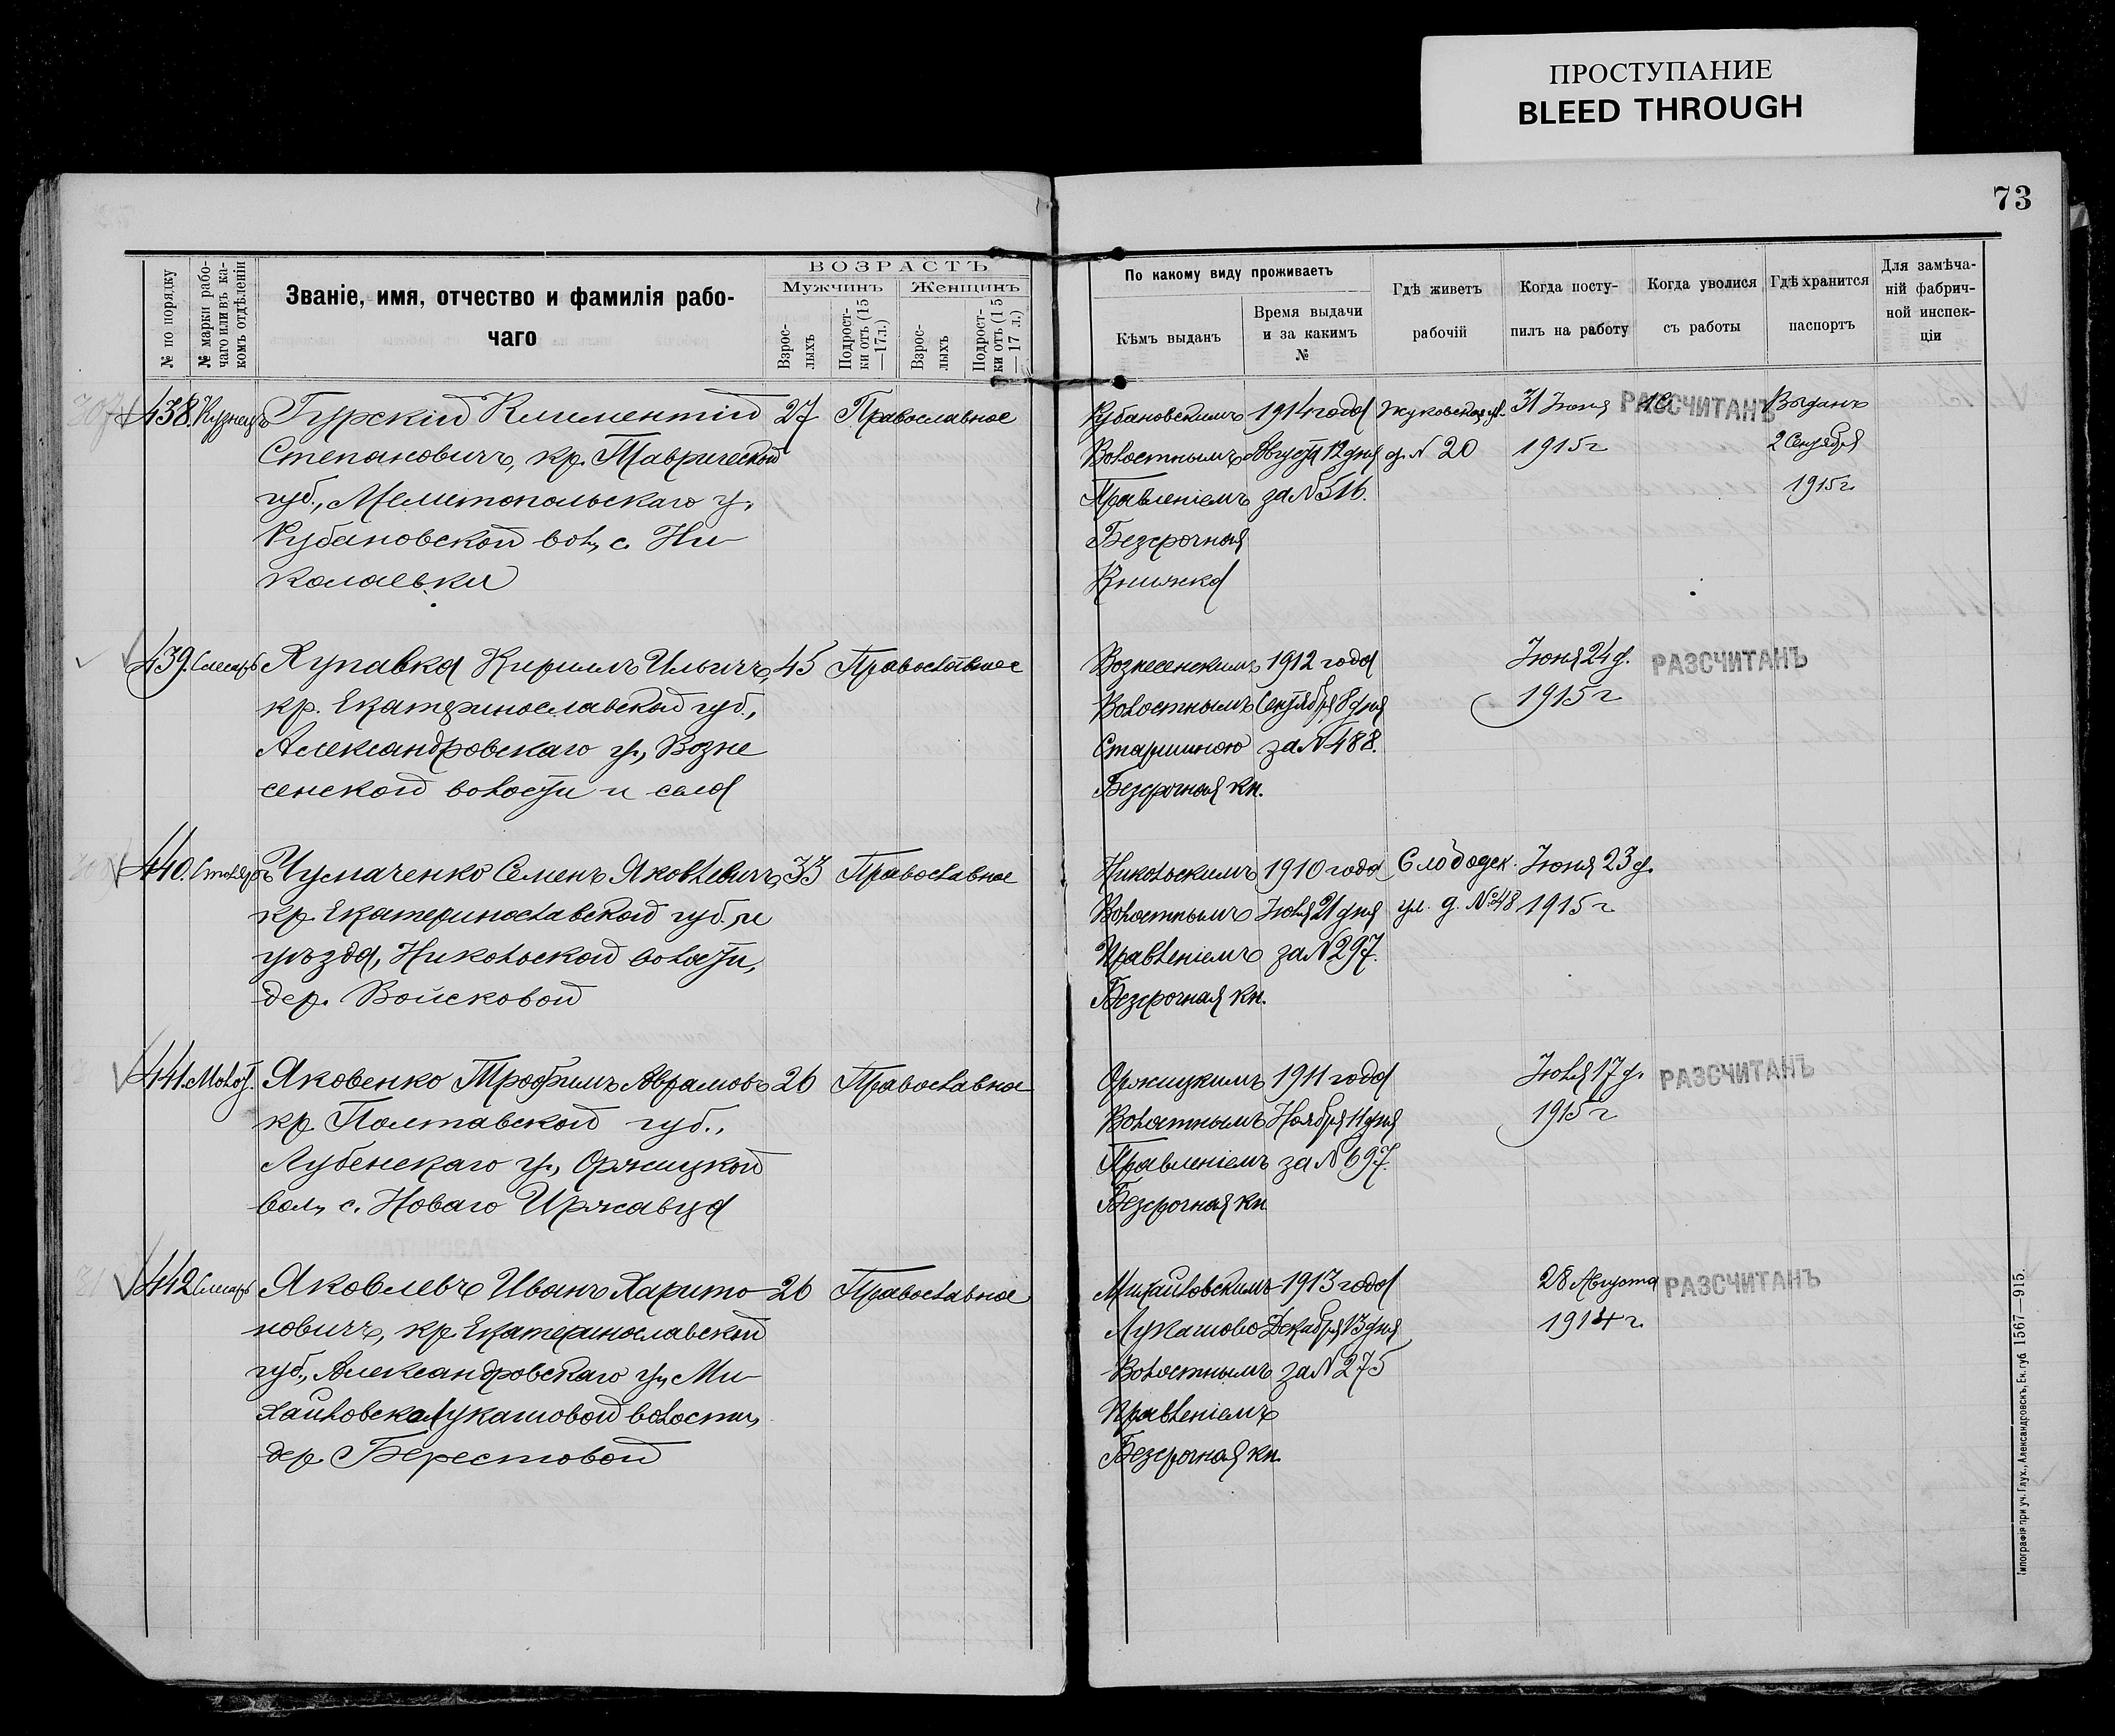 ПРОСТУПАНИЕ
BLEED THROUGH
73
№ по порядку
№ марки рабо-
чаго или въ ка-
комъ отдѣленіи
Званіе, имя, отчество и фамилія рабо-
чаго
ВОЗРАСТЪ
Мужчинъ
Женщинъ
Взрос-
лыхъ
Подрост-
ки отъ (15
—17 л.)
Взрос-
лыхъ
Подрост-
ки отъ (15
—17 л.)
По какому виду проживаетъ
Кѣмъ выданъ
Время выдачи
и за какимъ
№
Гдѣ живетъ
рабочій
Когда посту-
пилъ на работу
Когда уволися
съ работы
Гдѣ хранится
паспортъ
Для замѣча-
ній фабрич-
ной инспек-
ціи
438. Кузнецъ Гурскій Климентій 27 Православное
Степановичъ, кр. Таврической
губ., Мелитопольскаго у.,
Рубановской вол., с. Ни-
колаевки
Рубановскимъ 1914 года Жуковская ул. 31 Іюня РАЗСЧИТАНЪ Выданъ
Волостнымъ Августа 12 дня д. № 20 1915 г 2 Сентября
Правленіемъ за № 516. 1915 г.
Безсрочная
Книжка
439. Слесарь Хупавка Кирилъ Ильичъ, 45 Православное
кр. Екатеринославской губ.,
Александровскаго у., Возне
сенской волости и села
Вознесенскимъ 1912 года Іюня 24 д. РАЗСЧИТАНЪ
Волостнымъ Сентября 8 дня 1915 г
Старшиною за № 488.
Безсрочная кн.
440. Столяръ Чумаченко Семенъ Яковлевичъ, 33 Православное
кр. Екатеринославской губ. и
уѣзда, Никольской волости,
дер. Войсковой
Никольскимъ 1910 года Слободск. Іюня 23 д.
Волостнымъ Іюля 21 дня ул. д. № 48 1915 г
Правленіемъ за № 297.
Безсрочная кн.
441. Молот. Яковенко Трофимъ Аврамовъ 26 Православное
кр. Полтавской губ.,
Лубенскаго у., Оржицкой
вол., с. Новаго Иржавца
Оржицкимъ 1911 года Іюля 17 д. РАЗСЧИТАНЪ
Волостнымъ Ноября 11 дня 1915 г
Правленіемъ за № 697.
Безсрочная кн.
442. Слесарь Яковлевъ Иванъ Харито- 26 Православное
новичъ, кр. Екатеринославской
губ., Александровскаго у., Ми-
хайловско Лукашовой волости,
дер. Берестовой
Михайловскимъ 1913 года 28 Августа РАЗСЧИТАНЪ
Лукашово Декабря 13 дня 1914 г.
Волостнымъ за № 275
Правленіемъ
Безсрочная кн.
Типографія при уч. Глух., Александровскъ, Ек. губ. 1567—915.